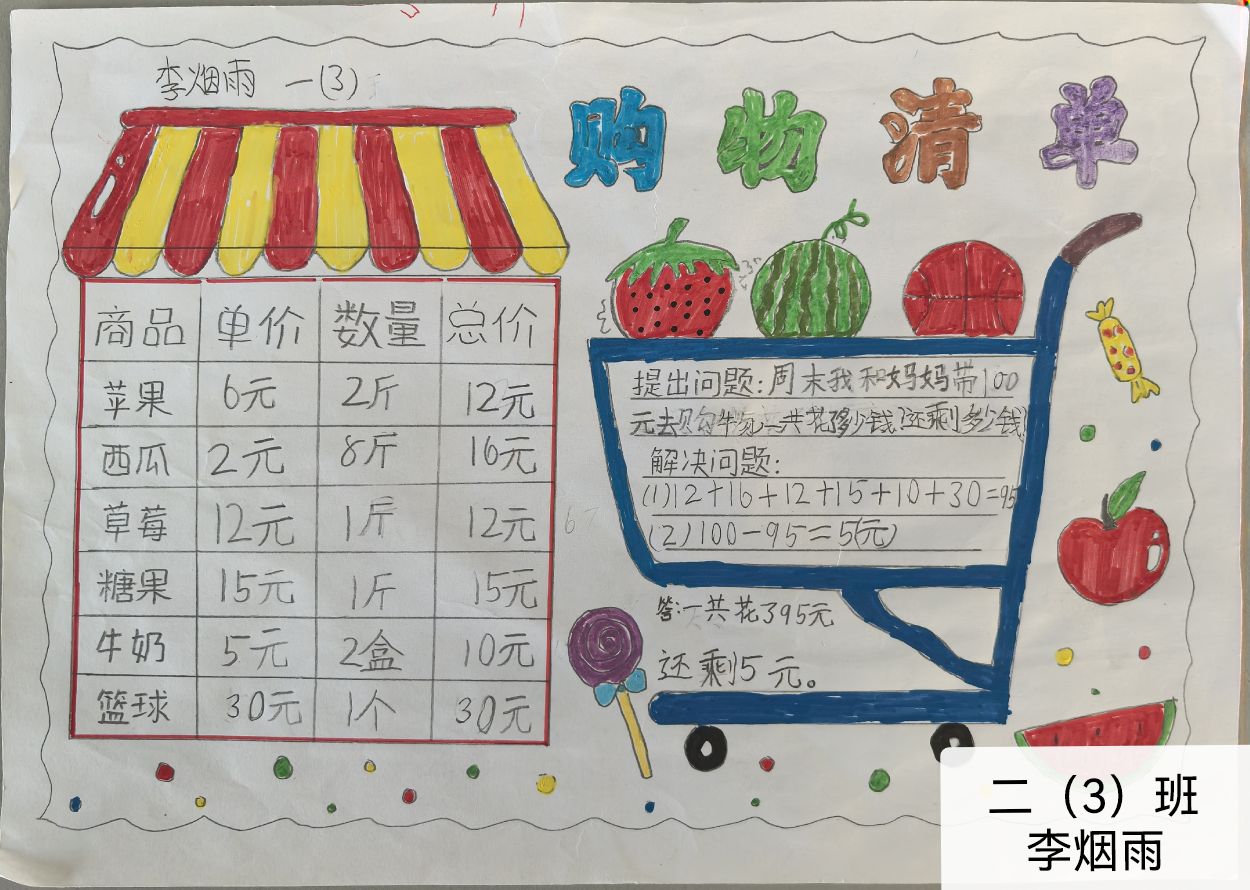 李烟雨 一(3)
购物清单
商品 单价 数量 总价
苹果 6元 2斤 12元
西瓜 2元 8斤 16元
草莓 12元 1斤 12元
糖果 15元 1斤 15元
牛奶 5元 2盒 10元
篮球 30元 1个 30元
提出问题:周末我和妈妈带100
元去购物,一共花多少钱?还剩多少钱?
解决问题:
(1)12+16+12+15+10+30=95
(2)100-95=5(元)
答:一共花了95元
还剩5元。
二（3）班
李烟雨